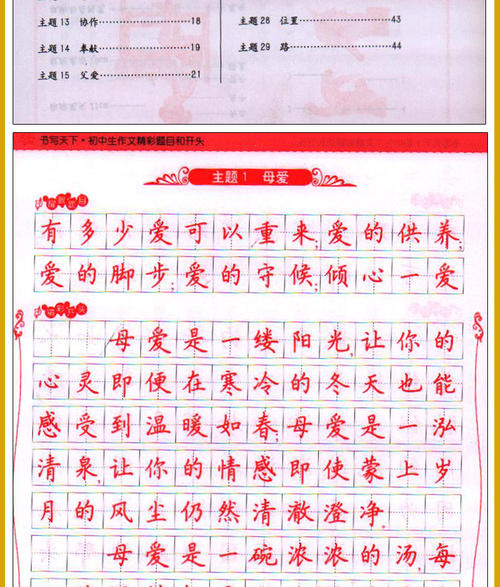 主题13 协作……………………18
主题14 奉献……………………19
主题15 父爱……………………21
主题28 位置……………………43
主题29 路……………………44
书写天下·初中生作文精彩题目和开头
主题1 母爱
精彩题目
有多少爱可以重来;爱的供养;
爱的脚步;爱的守候;倾心一爱
精彩开头
母爱是一缕阳光,让你的
心灵即便在寒冷的冬天也能
感受到温暖如春;母爱是一泓
清泉,让你的情感即使蒙上岁
月的风尘仍然清澈澄净。
母爱是一碗浓浓的汤,每